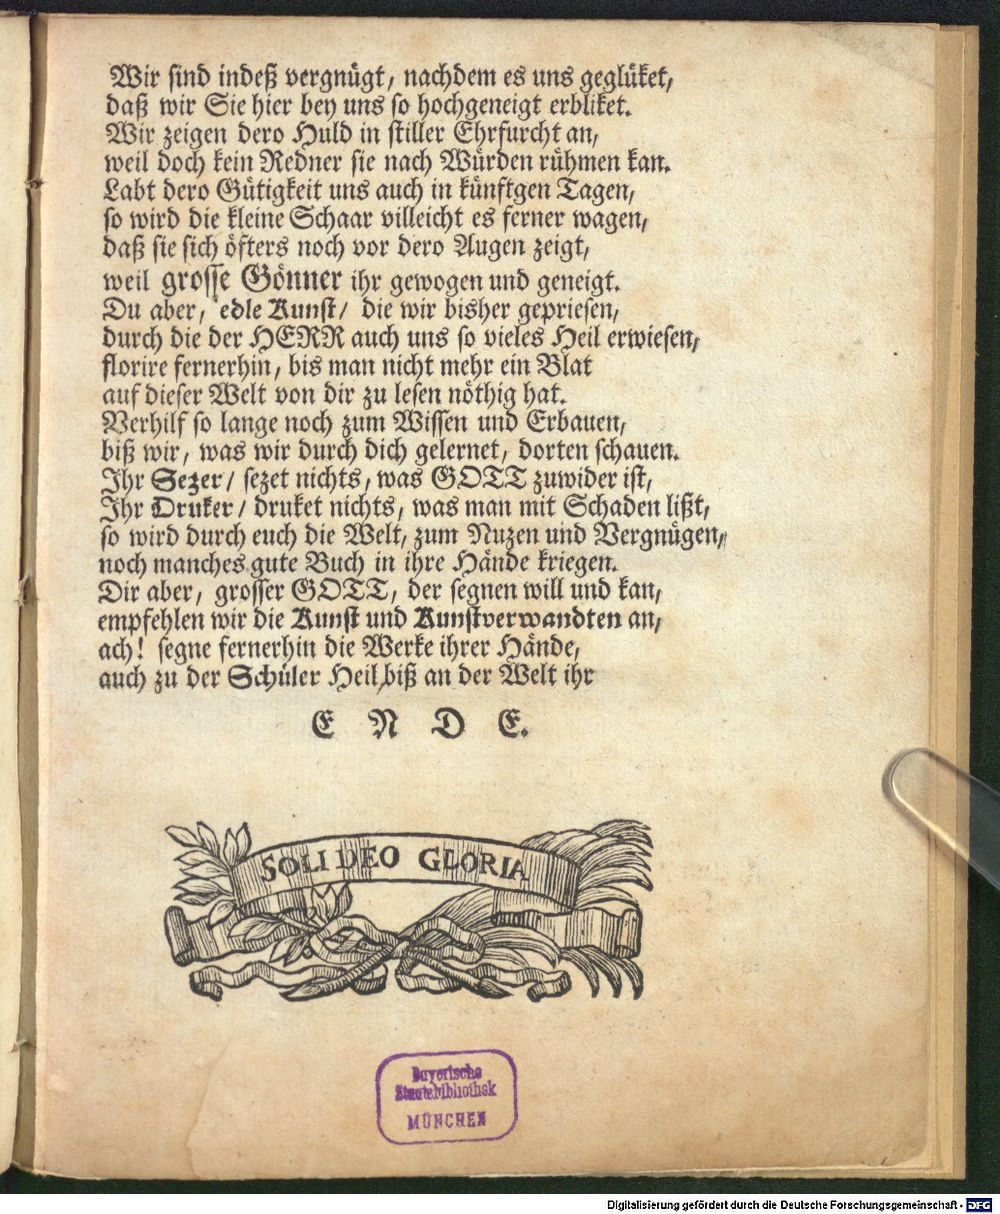 Wir sind indeß vergnügt, nachdem es uns geglüket,
daß wir Sie hier bey uns so hochgeneigt erbliket.
Wir zeigen dero Huld in stiller Ehrfurcht an,
weil doch kein Redner sie nach Würden rühmen kan.
Labt dero Gütigkeit uns auch in künftgen Tagen,
so wird die kleine Schaar villeicht es ferner wagen,
daß sie sich öfters noch vor dero Augen zeigt,
weil grosse Gönner ihr gewogen und geneigt.
Du aber, edle Kunst/ die wir bisher gepriesen,
durch die der HERR auch uns so vieles Heil erwiesen,
florire fernerhin, bis man nicht mehr ein Blat
auf dieser Welt von dir zu lesen nöthig hat.
Verhilf so lange noch zum Wissen und Erbauen,
biß wir, was wir durch dich gelernet, dorten schauen.
Ihr Sezer/ sezet nichts, was GOTT zuwider ist,
Ihr Druker/ druket nichts, was man mit Schaden lißt,
so wird durch euch die Welt, zum Nuzen und Vergnügen,
noch manches gute Buch in ihre Hände kriegen.
Dir aber, grosser GOTT, der segnen will und kan,
empfehlen wir die Kunst und Kunstverwandten an,
ach! segne fernerhin die Werke ihrer Hände,
auch zu der Schüler Heil, biß an der Welt ihr
E N D E.
SOLI DEO GLORIA
Bayerische
Staatsbibliothek
MÜNCHEN
Digitalisierung gefördert durch die Deutsche Forschungsgemeinschaft - DFG